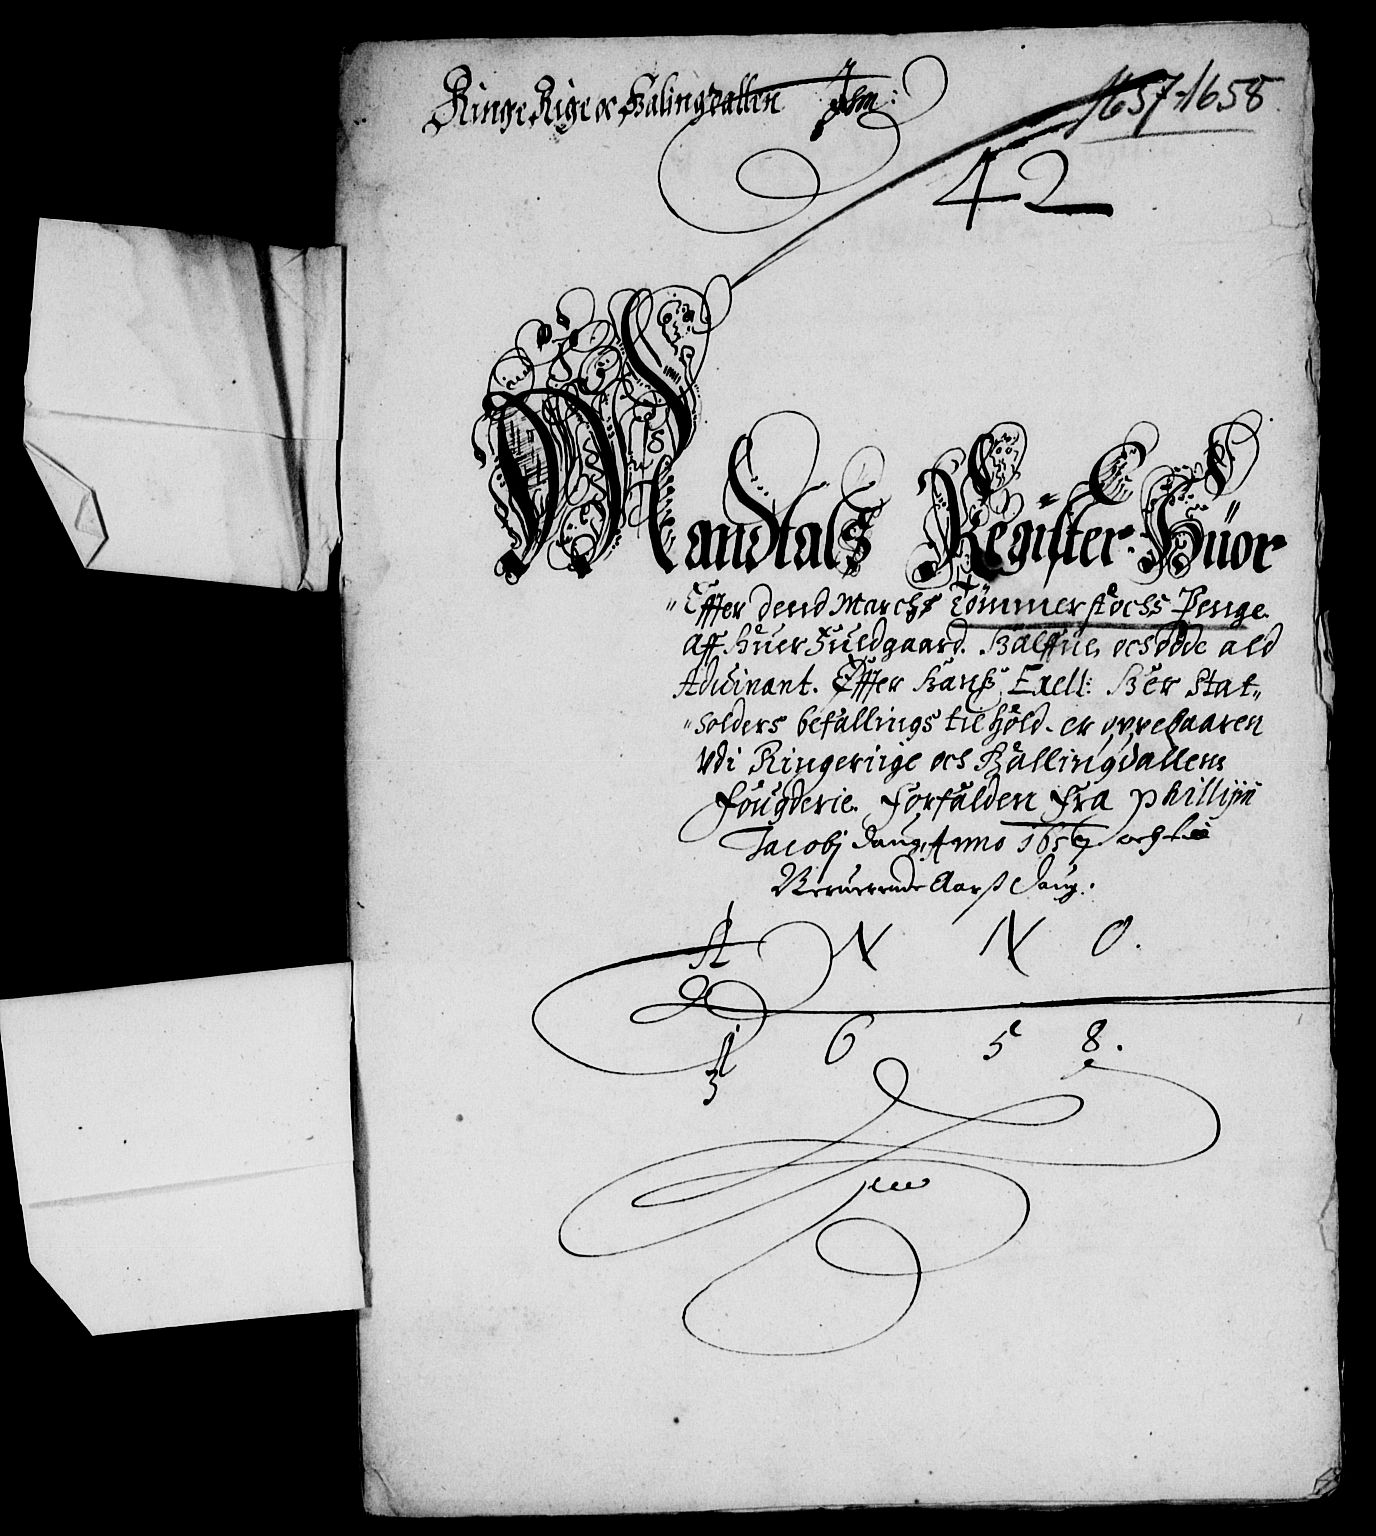 Ringe Rige oc Halingdallen
1657-1658
42
Mandtals Register. Huor
Effter dend March Tömmerstochs Penge
Aff huer Fuldgaard. Hälffue, och øde ald
Aduinant. Effter Hanß Excell: Her Stat„
„holders befallings tilhold. er oppebaaren
Vdi Ringeriige och Hallingdallens
Fougderie. Forfalden fra Phillippi
Jacobj Daug, Anno 1657. och til
Neruerende Aarß Daug.
A N N O.
1 6 5 8.